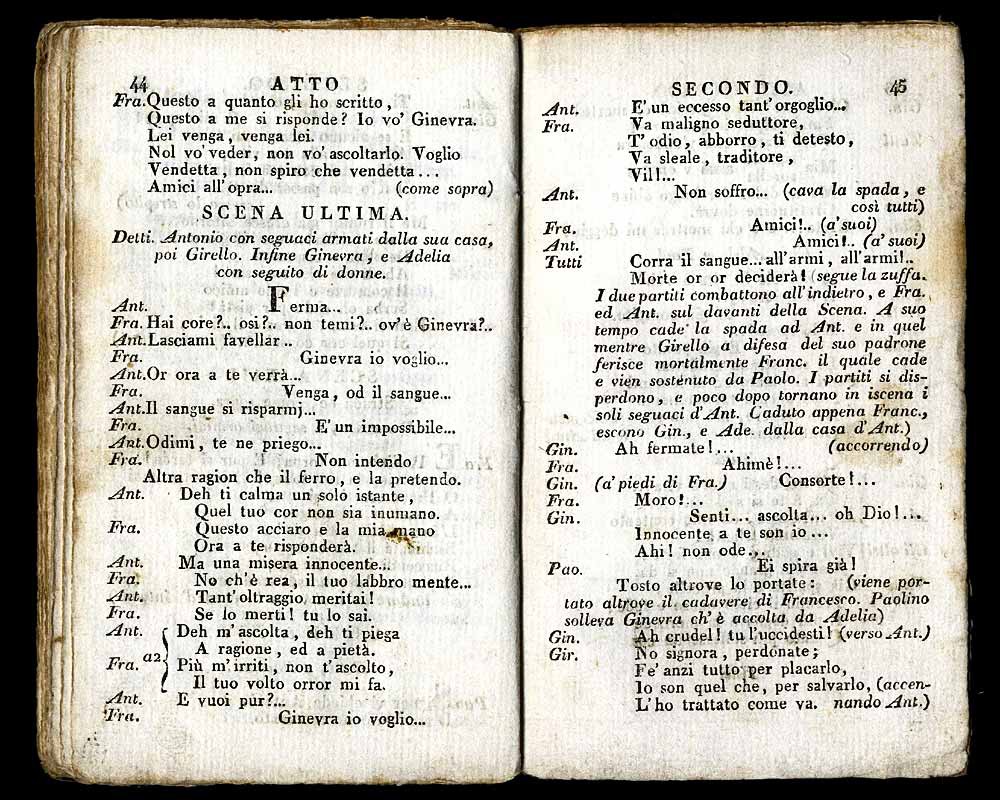 44
ATTO
Fra. Questo a quanto gli ho scritto,
Questo a me si risponde? Io vo' Ginevra.
Lei venga, venga lei.
Nol vo' veder, non vo' ascoltarlo. Voglio
Vendetta, non spiro che vendetta...
Amici all' opra... (come sopra)
SCENA ULTIMA.
Detti. Antonio con seguaci armati dalla sua casa,
poi Girello. Infine Ginevra, e Adelia
con seguito di donne.
Ant. Ferma...
Fra. Hai core?.. osi?.. non temi?.. ov'è Ginevra?..
Ant. Lasciami favellar..
Fra. Ginevra io voglio...
Ant. Or ora a te verrà...
Fra. Venga, od il sangue...
Ant. Il sangue si risparmj...
Fra. E' un impossibile...
Ant. Odimi, te ne priego...
Fra. Non intendo
Altra ragion che il ferro, e la pretendo.
Ant. Deh ti calma un solo istante,
Quel tuo cor non sia inumano.
Fra. Questo acciaro e la mia mano
Ora a te risponderà.
Ant. Ma una misera innocente...
Fra. No ch'è rea, il tuo labbro mente...
Ant. Tant' oltraggio meritai!
Fra. Se lo merti! tu lo sai.
Ant. Deh m' ascolta, deh ti piega
A ragione, ed a pietà.
a2
Fra. Più m' irriti, non t' ascolto,
Il tuo volto orror mi fa.
Ant. E vuoi pur?...
Fra. Ginevra io voglio...
SECONDO.
45
Ant. E' un eccesso tant' orgoglio...
Fra. Va maligno seduttore,
T' odio, abborro, ti detesto,
Va sleale, traditore,
Vil!...
Ant. Non soffro... (cava la spada, e
così tutti)
Fra. Amici!.. (a' suoi)
Ant. Amici!.. (a' suoi)
Tutti Corra il sangue... all' armi, all' armi!..
Morte or or deciderà! (segue la zuffa.
I due partiti combattono all' indietro, e Fra.
ed Ant. sul davanti della Scena. A suo
tempo cade la spada ad Ant. e in quel
mentre Girello a difesa del suo padrone
ferisce mortalmente Franc. il quale cade
e vien sostenuto da Paolo. I partiti si dis-
perdono, e poco dopo tornano in iscena i
soli seguaci d' Ant. Caduto appena Franc.,
escono Gin., e Ade. dalla casa d' Ant.)
Gin. Ah fermate!... (accorrendo)
Fra. Ahimè!...
Gin. (a' piedi di Fra.) Consorte!...
Fra. Moro!...
Gin. Senti... ascolta... oh Dio!...
Innocente a te son io...
Ahi! non ode...
Pao. Ei spira già!
Tosto altrove lo portate: (viene por-
tato altrove il cadavere di Francesco. Paolino
solleva Ginevra ch' è accolta da Adelia)
Gin. Ah crudel! tu l' uccidesti! (verso Ant.)
Gir. No signora, perdonate;
Fe' anzi tutto per placarlo,
Io son quel che, per salvarlo, (accen-
L' ho trattato come va. nando Ant.)